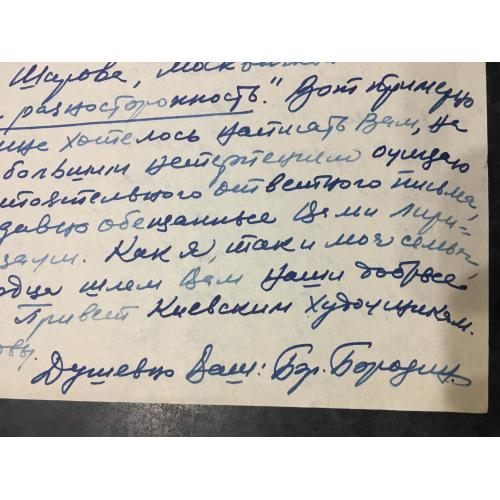 Шарова,
разносторонность." Вот примерно
еще хотелось написать Вам, на
большим нетерпением ожидаю
стоятельного ответного письма,
давно обещанные Вами лири-
Как я, так и моя семья,
рдца шлем Вам наши добрые
Привет Киевским Художникам.
овы.
Душевно Ваш: Бор. Бородин.